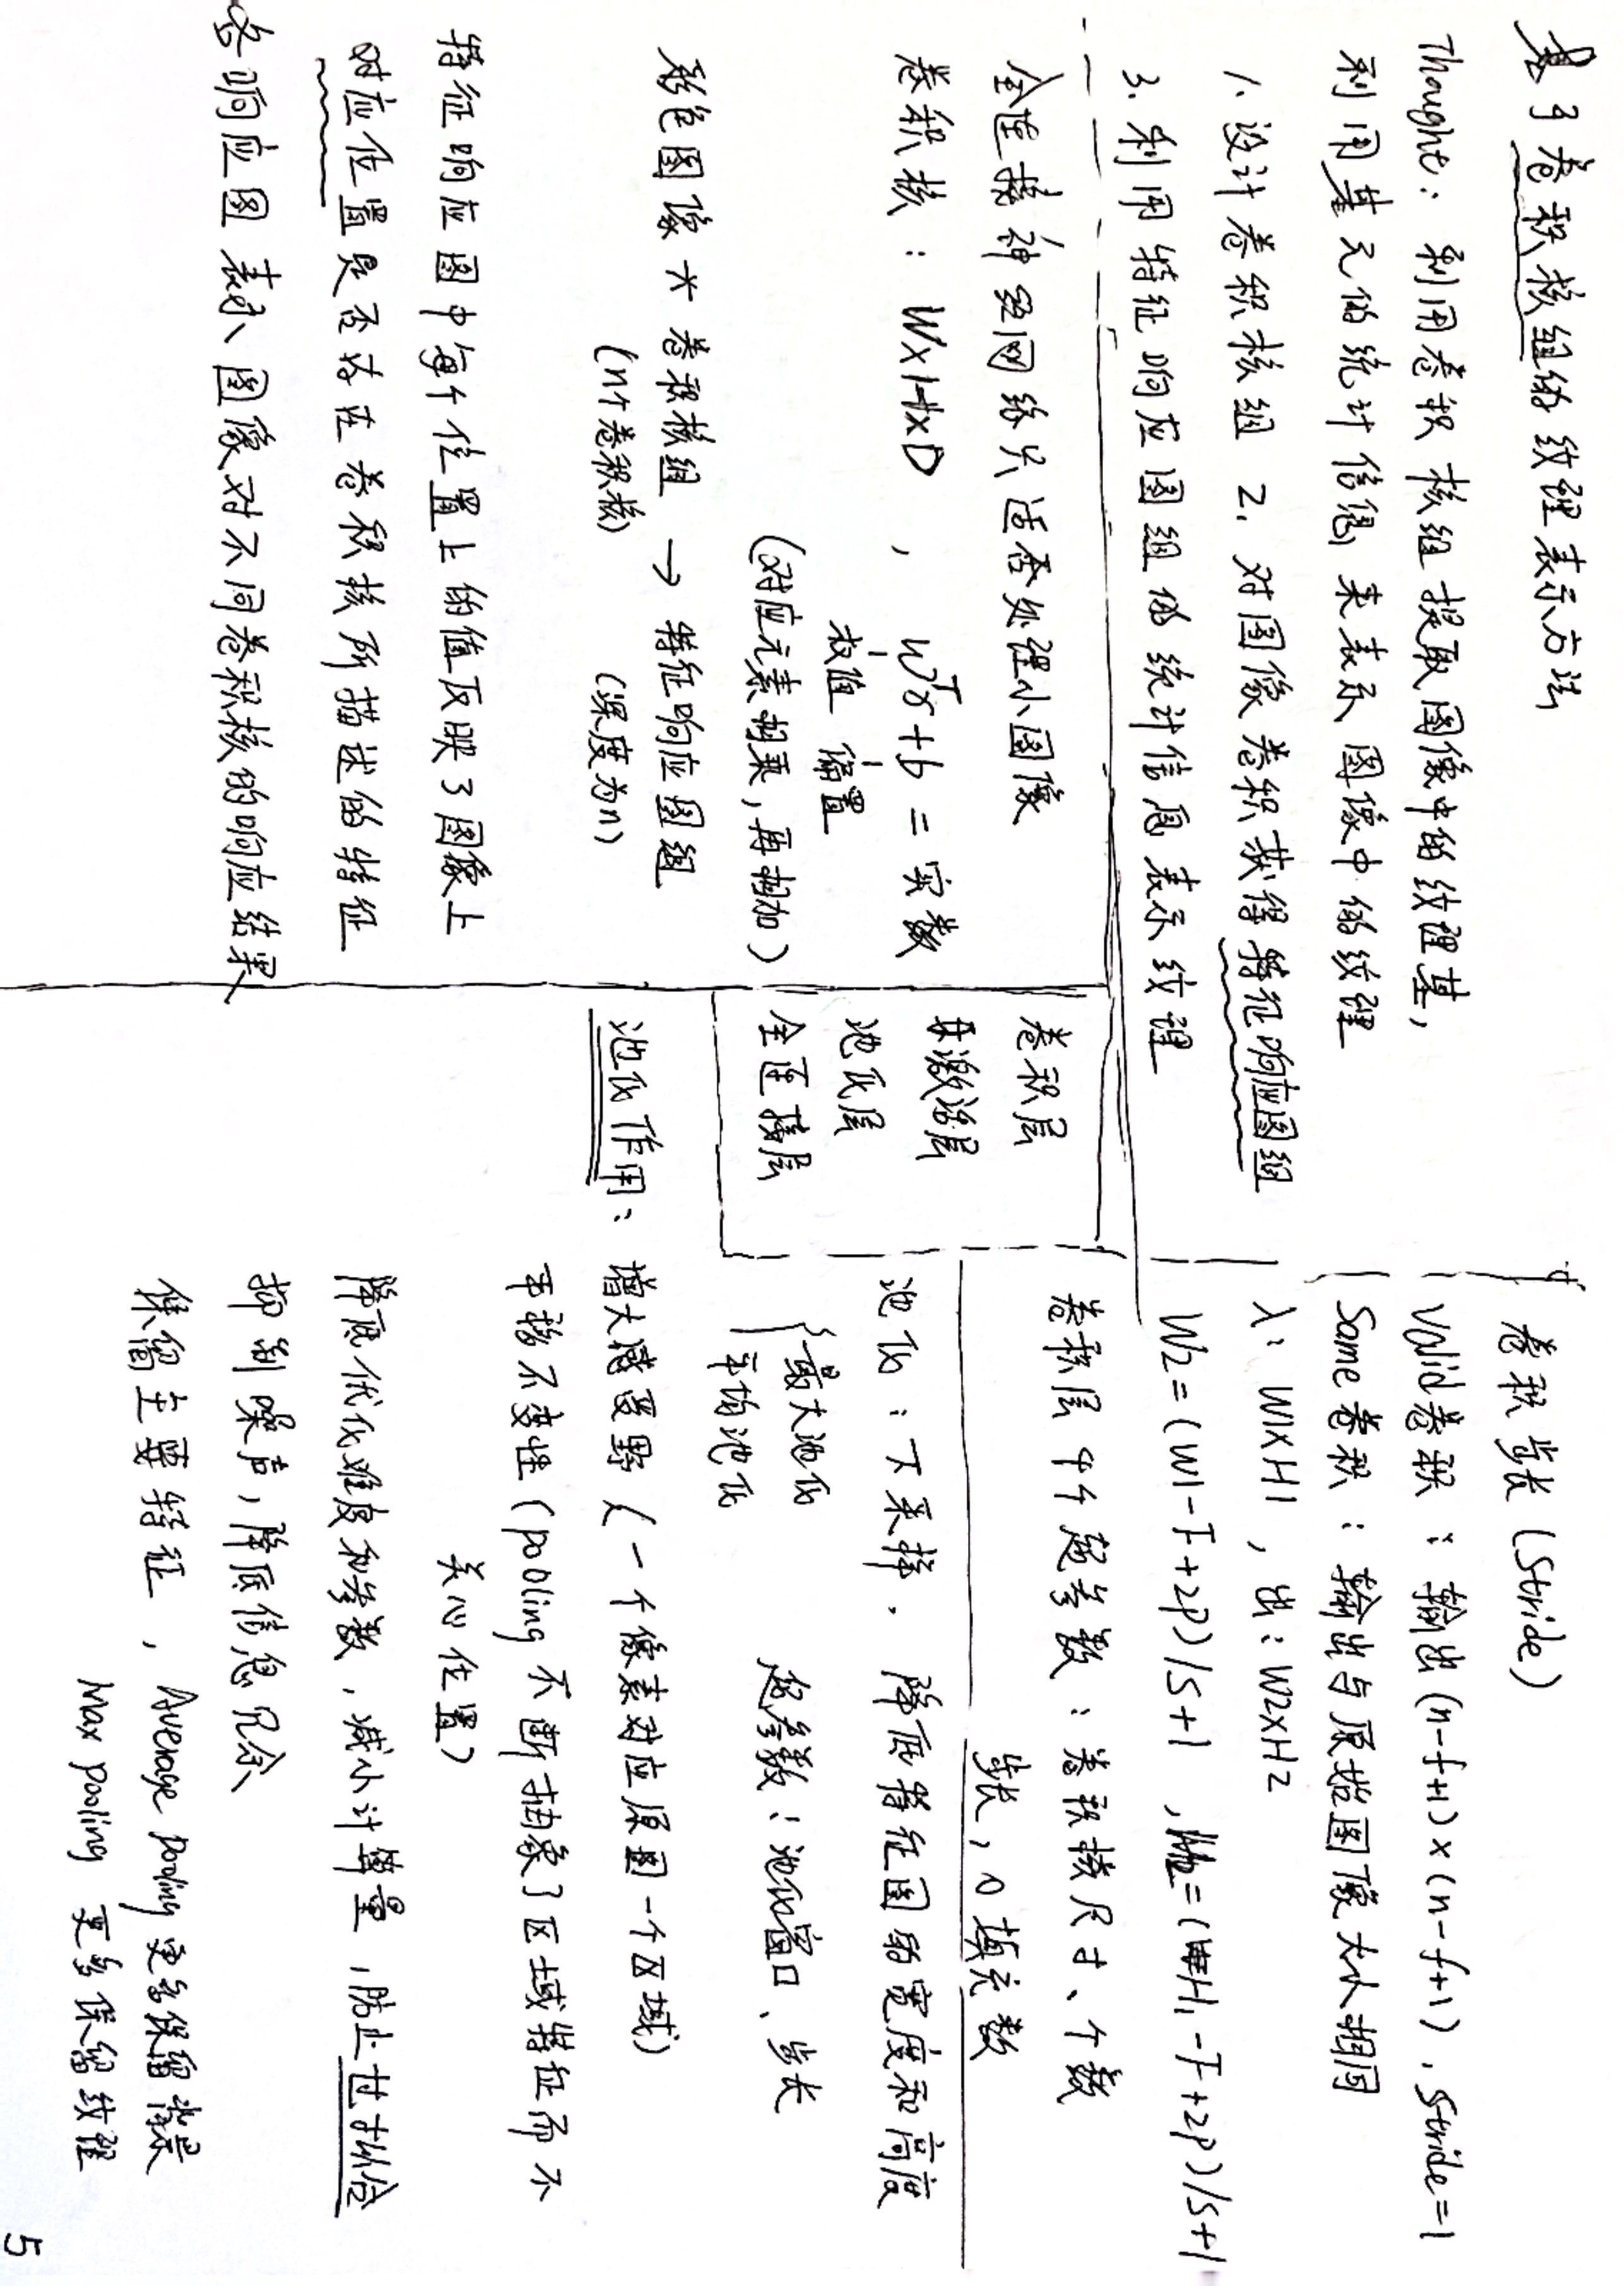 基于卷积核组的纹理表示方法
Thought：利用卷积核组提取图像中的纹理基，
利用基元的统计信息来表示图像中的纹理
1. 设计卷积核组 2. 对图像卷积获得特征响应图组
3. 利用特征响应图组的统计信息表示纹理
全连接神经网络只适合处理小图像
卷积核：W×H×D ， wᵀx+b = 实数
权值 偏置
(对应元素相乘，再相加)
彩色图像 * 卷积核组 → 特征响应图组
(n个卷积核) (深度为n)
特征响应图中每个位置上的值反映了图像上
对应位置是否存在卷积核所描述的特征
各响应图表示图像对不同卷积核的响应结果
卷积层
激活层
池化层
全连接层
卷积步长 (Stride)
Valid卷积：输出 (n-f+1)×(n-f+1)，stride=1
Same卷积：输出与原始图像大小相同
入：W1×H1 ，出：W2×H2
W2=(W1-F+2P)/S+1 ，H2=(H1-F+2P)/S+1
卷积层4个超参数：卷积核尺寸、个数
步长，0填充数
池化：下采样. 降低特征图的宽度和高度
最大池化
平均池化
超参数：池化窗口、步长
池化作用：增大感受野 (一个像素对应原图一个区域)
平移不变性 (pooling不断抽象了区域特征而不
关心位置)
降低优化难度和参数，减小计算量，防止过拟合
抑制噪声，降低信息冗余
保留主要特征，Average pooling 更多保留背景
Max pooling 更多保留纹理
5